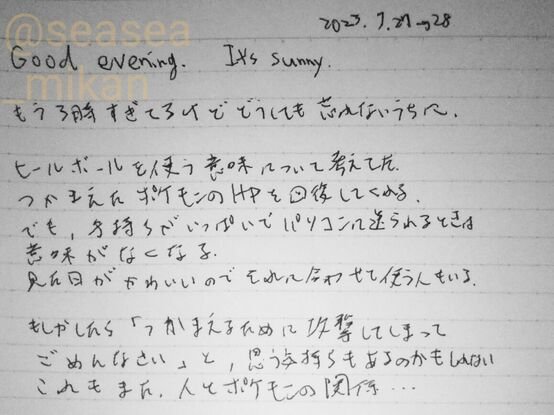 @seasea
_mikan
2023.7.27→28
Good evening. It's sunny.
もう3時すぎてるけどどうしても忘れないうちに.
ヒールボールを使う意味について考えてた.
つかまえたポケモンのHPを回復してくれる.
でも、手持ちがいっぱいでパソコンに送られるときは
意味がなくなる.
見た目がかわいいのでそれに合わせて使う人もいる.
もしかしたら「つかまえるために攻撃してしまって
ごめんなさい」と、思う気持ちもあるのかもしれない
これもまた、人とポケモンの関係…